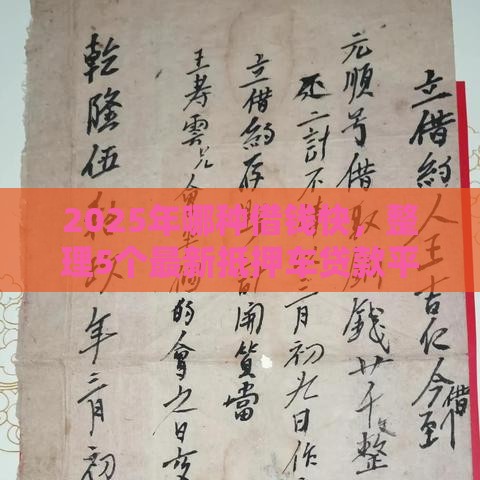 立借約人王吉仁今至
借
元順号借錢廿千整
二計不三月初九日作
立借約存開質當
王寿雲兄會的會之日交
乾隆伍年三月初
2025年哪种借钱快，整
理5个最新抵押车贷款平